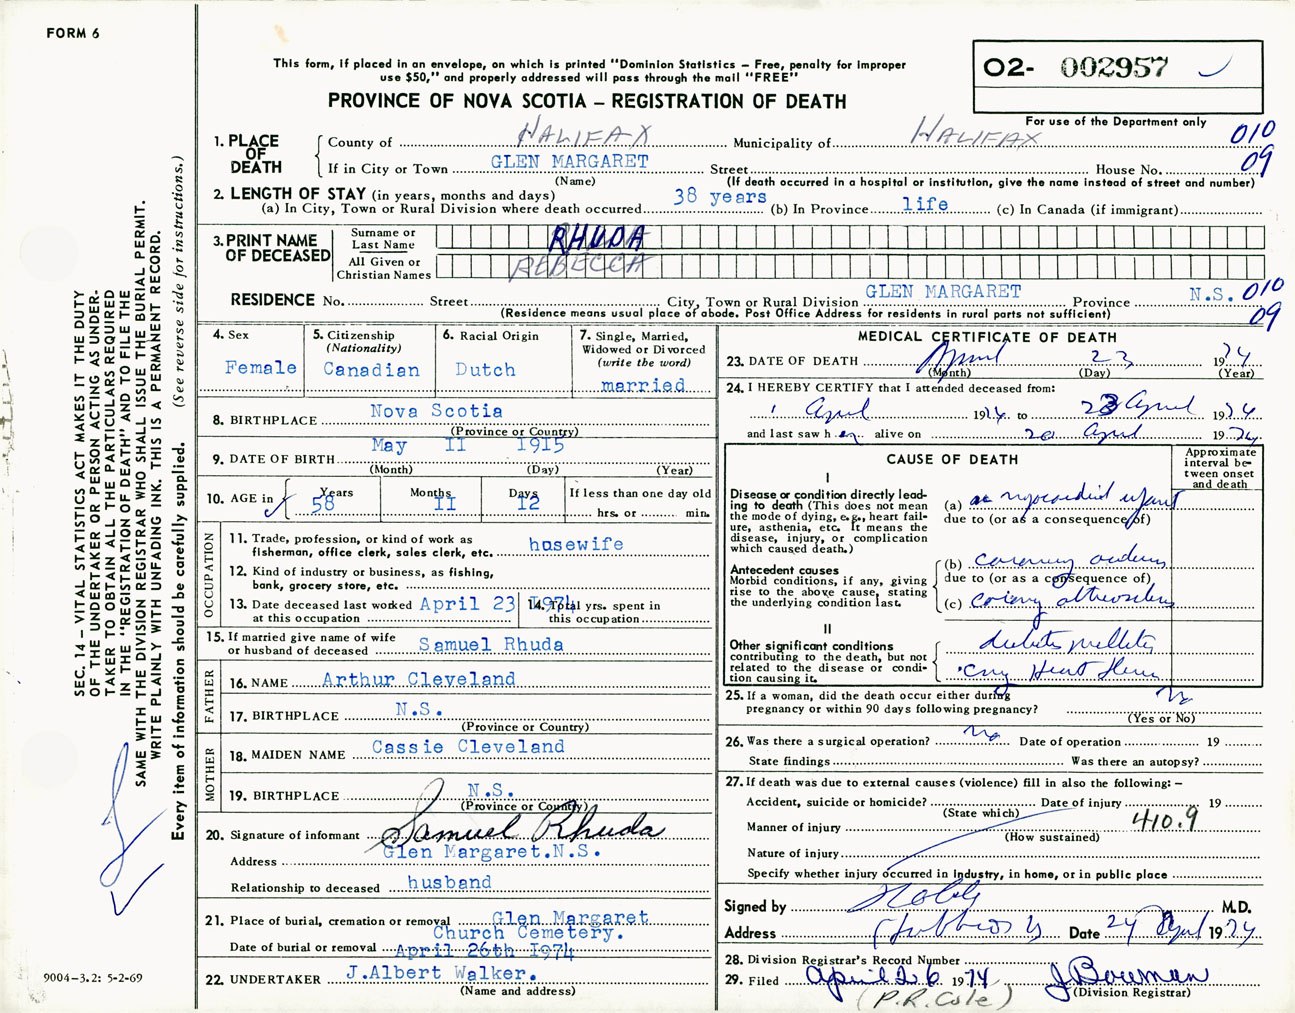 FORM 6
O2- 002957
This form, if placed in an envelope, on which is printed "Dominion Statistics – Free, penalty for improper
use $50," and properly addressed will pass through the mail "FREE"
PROVINCE OF NOVA SCOTIA – REGISTRATION OF DEATH
For use of the Department only
1. PLACE OF DEATH
County of HALIFAX Municipality of HALIFAX 010
If in City or Town GLEN MARGARET Street House No. 09
(Name) (If death occurred in a hospital or institution, give the name instead of street and number)
2. LENGTH OF STAY (in years, months and days)
(a) In City, Town or Rural Division where death occurred 38 years (b) In Province life (c) In Canada (if immigrant)
3. PRINT NAME OF DECEASED
Surname or Last Name RHUDA
All Given or Christian Names REBECCA
RESIDENCE No. Street City, Town or Rural Division GLEN MARGARET Province N.S. 010
(Residence means usual place of abode. Post Office Address for residents in rural parts not sufficient) 09
4. Sex
Female
5. Citizenship
(Nationality)
Canadian
6. Racial Origin
Dutch
7. Single, Married,
Widowed or Divorced
(write the word)
married
8. BIRTHPLACE Nova Scotia
(Province or Country)
9. DATE OF BIRTH May II I9I5
(Month) (Day) (Year)
10. AGE in Years Months Days If less than one day old
58 II I2 hrs. or min.
OCCUPATION
11. Trade, profession, or kind of work as
fisherman, office clerk, sales clerk, etc. hosewife
12. Kind of industry or business, as fishing,
bank, grocery store, etc.
13. Date deceased last worked April 23 I974
at this occupation
14. Total yrs. spent in
this occupation
15. If married give name of wife
or husband of deceased Samuel Rhuda
FATHER
16. NAME Arthur Cleveland
17. BIRTHPLACE N.S.
(Province or Country)
MOTHER
18. MAIDEN NAME Cassie Cleveland
19. BIRTHPLACE N.S.
(Province or Country)
20. Signature of informant Samuel Rhuda
Address Glen Margaret.N.S.
Relationship to deceased husband
21. Place of burial, cremation or removal Glen Margaret
Church Cemetery.
Date of burial or removal April 26th I974
22. UNDERTAKER J.Albert Walker.
(Name and address)
MEDICAL CERTIFICATE OF DEATH
23. DATE OF DEATH April 23 1974
(Month) (Day) (Year)
24. I HEREBY CERTIFY that I attended deceased from:
1 April 1974 to 23 April 1974
and last saw h er alive on 20 April 1974
CAUSE OF DEATH
Approximate
interval be-
tween onset
and death
I
Disease or condition directly lead-
ing to death (This does not mean
the mode of dying, e.g., heart fail-
ure, asthenia, etc. It means the
disease, injury, or complication
which caused death.)
(a) ac myocardial infarct
due to (or as a consequence of)
Antecedent causes
Morbid conditions, if any, giving
rise to the above cause, stating
the underlying condition last.
(b) coronary
due to (or as a consequence of)
(c)
II
Other significant conditions
contributing to the death, but not
related to the disease or condi-
tion causing it.
diabetes mellitus
Heart
25. If a woman, did the death occur either during
pregnancy or within 90 days following pregnancy? No
(Yes or No)
26. Was there a surgical operation? No Date of operation 19
State findings Was there an autopsy?
27. If death was due to external causes (violence) fill in also the following: –
Accident, suicide or homicide? Date of injury 19
(State which)
Manner of injury 410.9
(How sustained)
Nature of injury
Specify whether injury occurred in industry, in home, or in public place
Signed by M.D.
Address Hubbards Date 24 April 1974
28. Division Registrar's Record Number
29. Filed April 26 1974 J Bowman
(P.R. Cole) (Division Registrar)
SEC. 14 – VITAL STATISTICS ACT MAKES IT THE DUTY
OF THE UNDERTAKER OR PERSON ACTING AS UNDER-
TAKER TO OBTAIN ALL THE PARTICULARS REQUIRED
IN THE "REGISTRATION OF DEATH" AND TO FILE THE
SAME WITH THE DIVISION REGISTRAR WHO SHALL ISSUE THE BURIAL PERMIT.
WRITE PLAINLY WITH UNFADING INK. THIS IS A PERMANENT RECORD.
Every item of information should be carefully supplied. (See reverse side for instructions.)
9004-3.2: 5-2-69